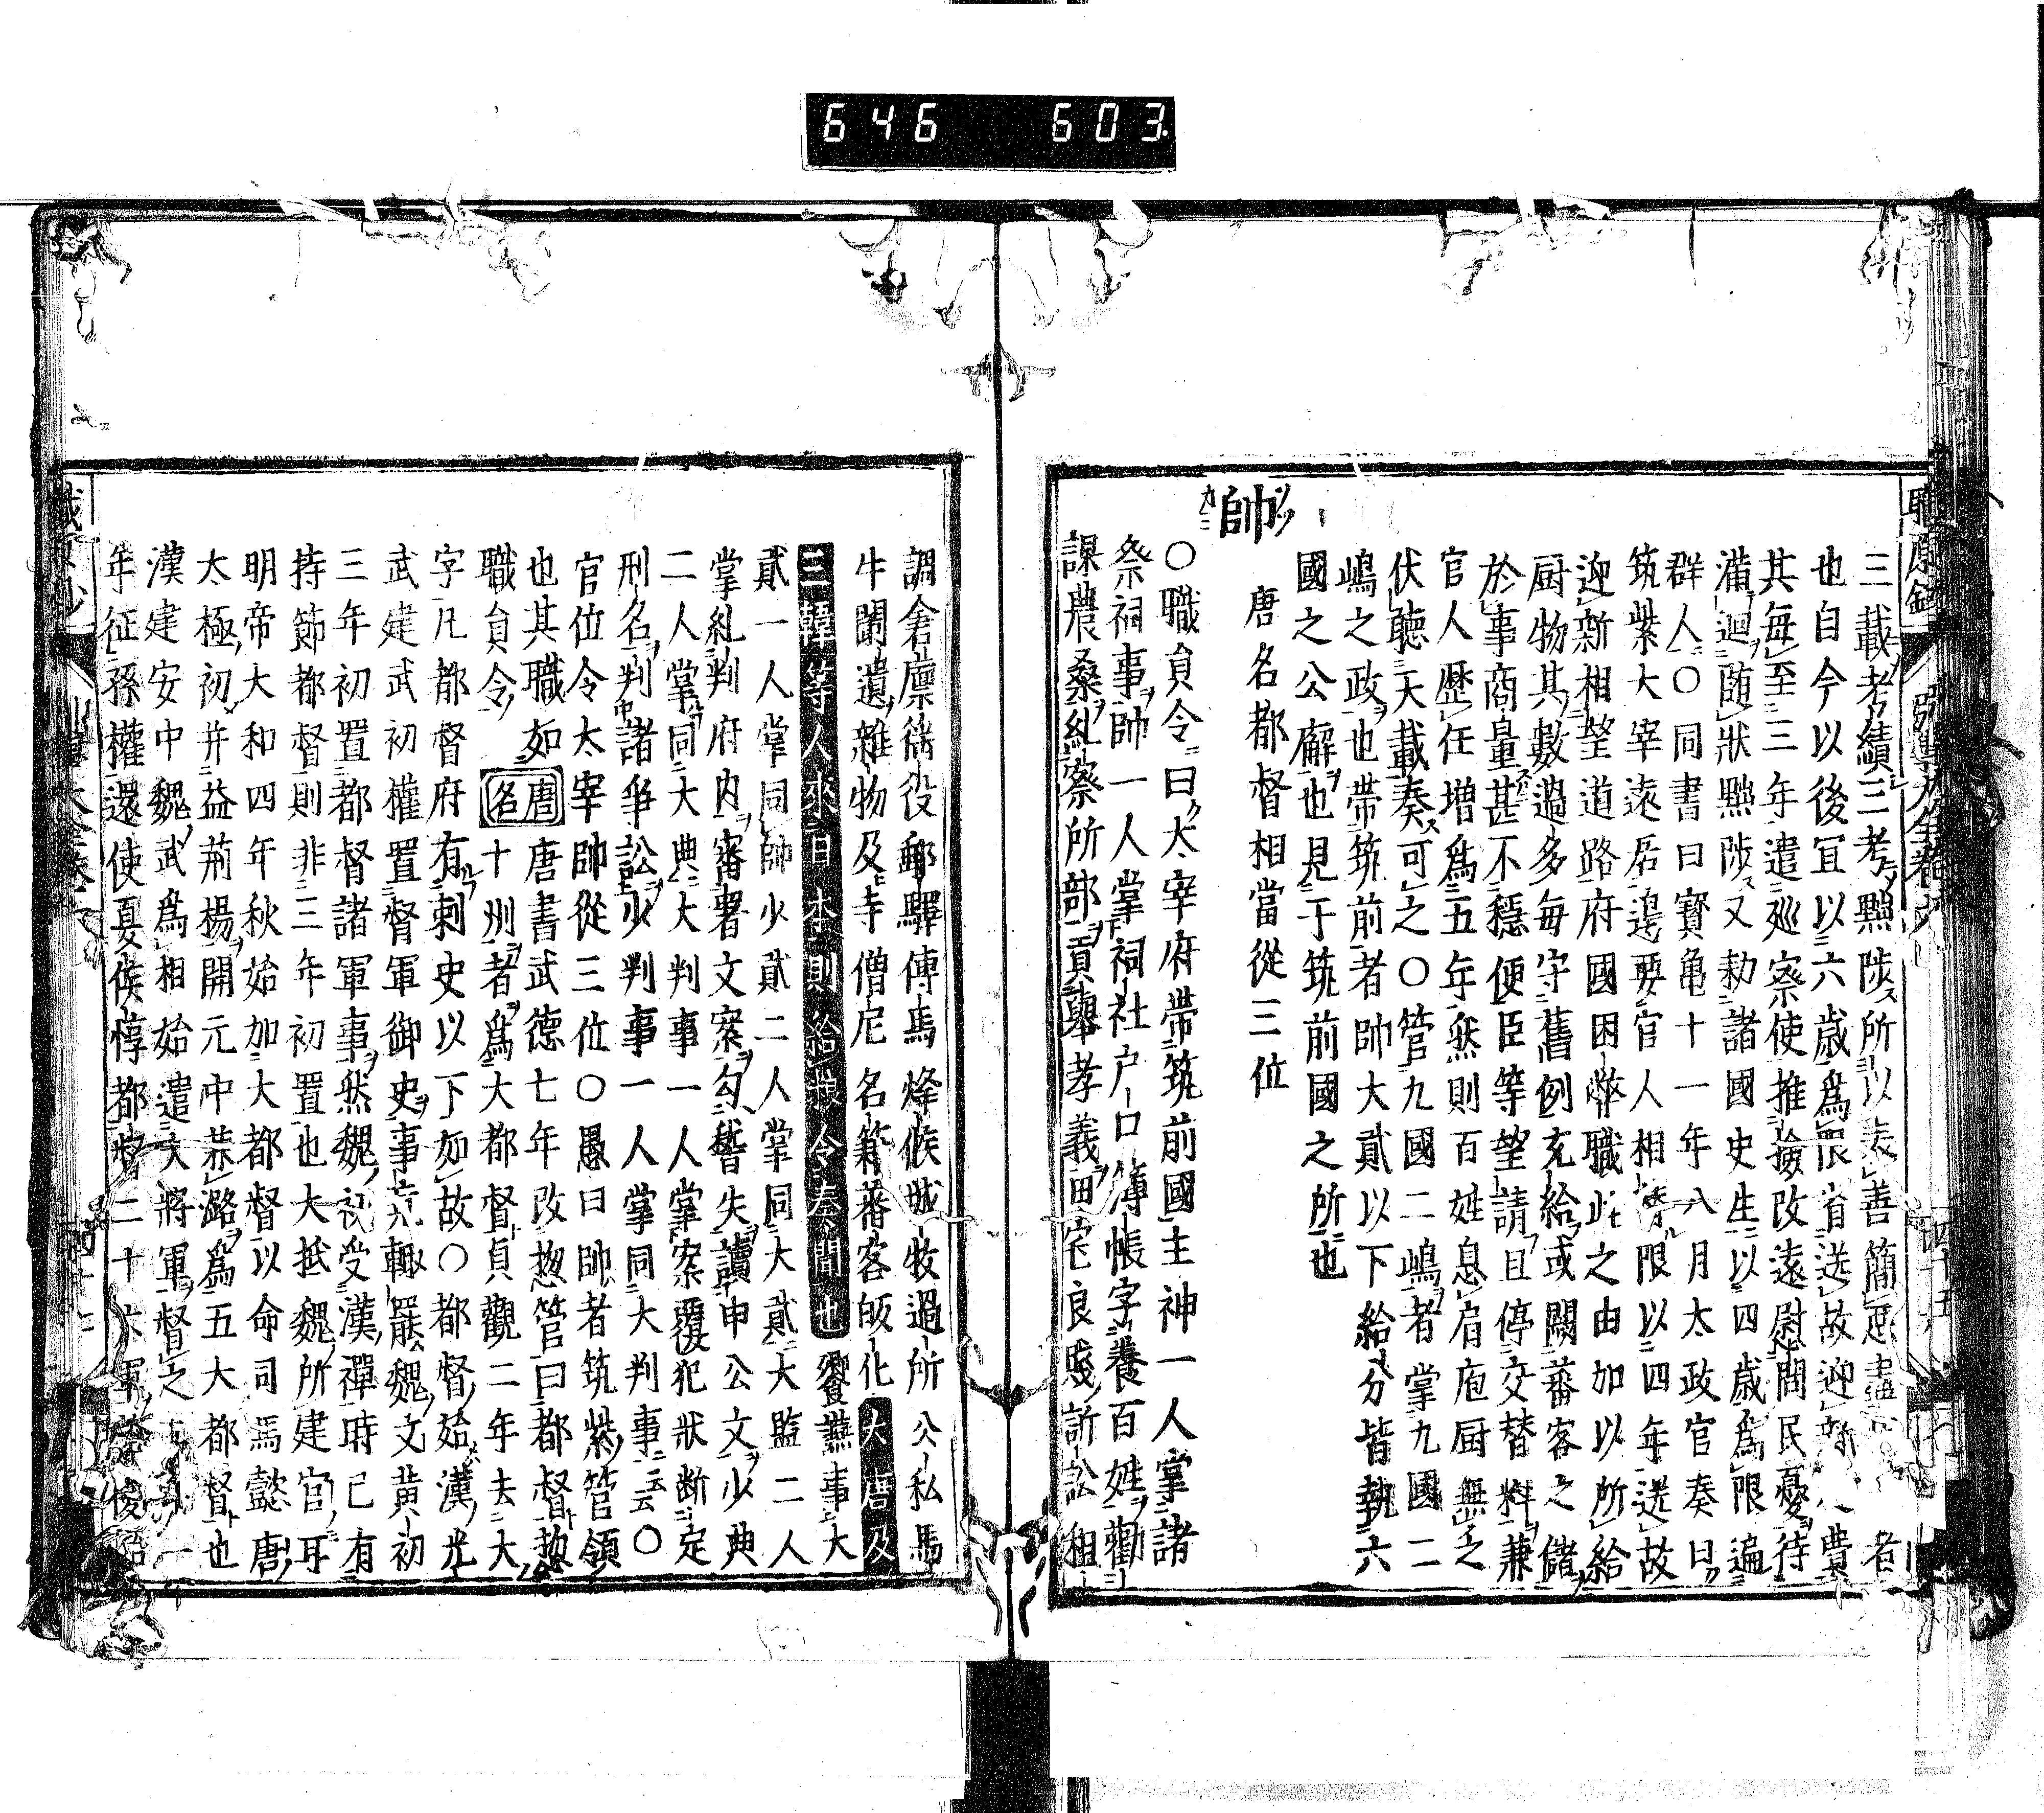 646 603
三載考績三考黜陟所以表善簡惡盡 者
也自今以後宜以六歳爲限省送故迎 費
其毎至三年遣巡察使推撿改遠慰問民憂待
滿廻随状黜陟又勅諸國史生以四歳爲限遍
群人〇同書曰寳亀十一年八月太政官奏曰
筑紫大宰遠居邊要官人相替限以四年送故
迎新相望道路府國困弊職此之由加以所給
厨物其數過多毎守舊例充給或闕蕃客之儲
於事商量甚不穏便臣等望請且停交替料兼
官人歴任増爲五年然則百姓息肩庖厨無乏
伏聴天載奏可之〇管九國二嶋者掌九國二
嶋之政也帯筑前者帥大貳以下給分皆執六
國之公廨也見于筑前國之所也
唐名都督相當從三位
帥
〇職貟令曰大宰府帯筑前國主神一人掌諸
祭祠事帥一人掌祠社户口簿帳字養百姓勸
課農桑糺察所部貢擧孝義田宅良賎訴訟租
調倉廪徭役郵驛傳馬烽候城牧過所公私馬
牛闌遺雑物及寺僧尼名籍蕃客皈化大唐及
三韓等人來日本則給粮令奏聞也饗讌事大
貳一人掌同帥少貳二人掌同大貳大監二人
掌糺判府内審署文案勾稽失讀申公文少典
二人掌同大典大判事一人掌案覆犯状断定
刑名判諸争訟少判事一人掌同大判事云云〇
官位令太宰帥從三位〇愚曰帥者筑紫管領
也其職如唐名唐書武德七年改惣管曰都督惣
職貟令 十州者爲大都督貞觀二年去大
字凡都督府有刺史以下如故〇都督始漢光
武建武初權置督軍御史事竟輙罷魏文黄初
三年初置都督諸軍事然魏初受漢禪時已有
持節都督則非三年初置也大抵魏所建官耳
明帝大和四年秋始加大都督以命司馬懿唐
太極初并益荊楊開元中恭潞爲五大都督也
漢建安中魏武爲相始遣大將軍督之 一
年征孫權還使夏侯惇都督二十六軍